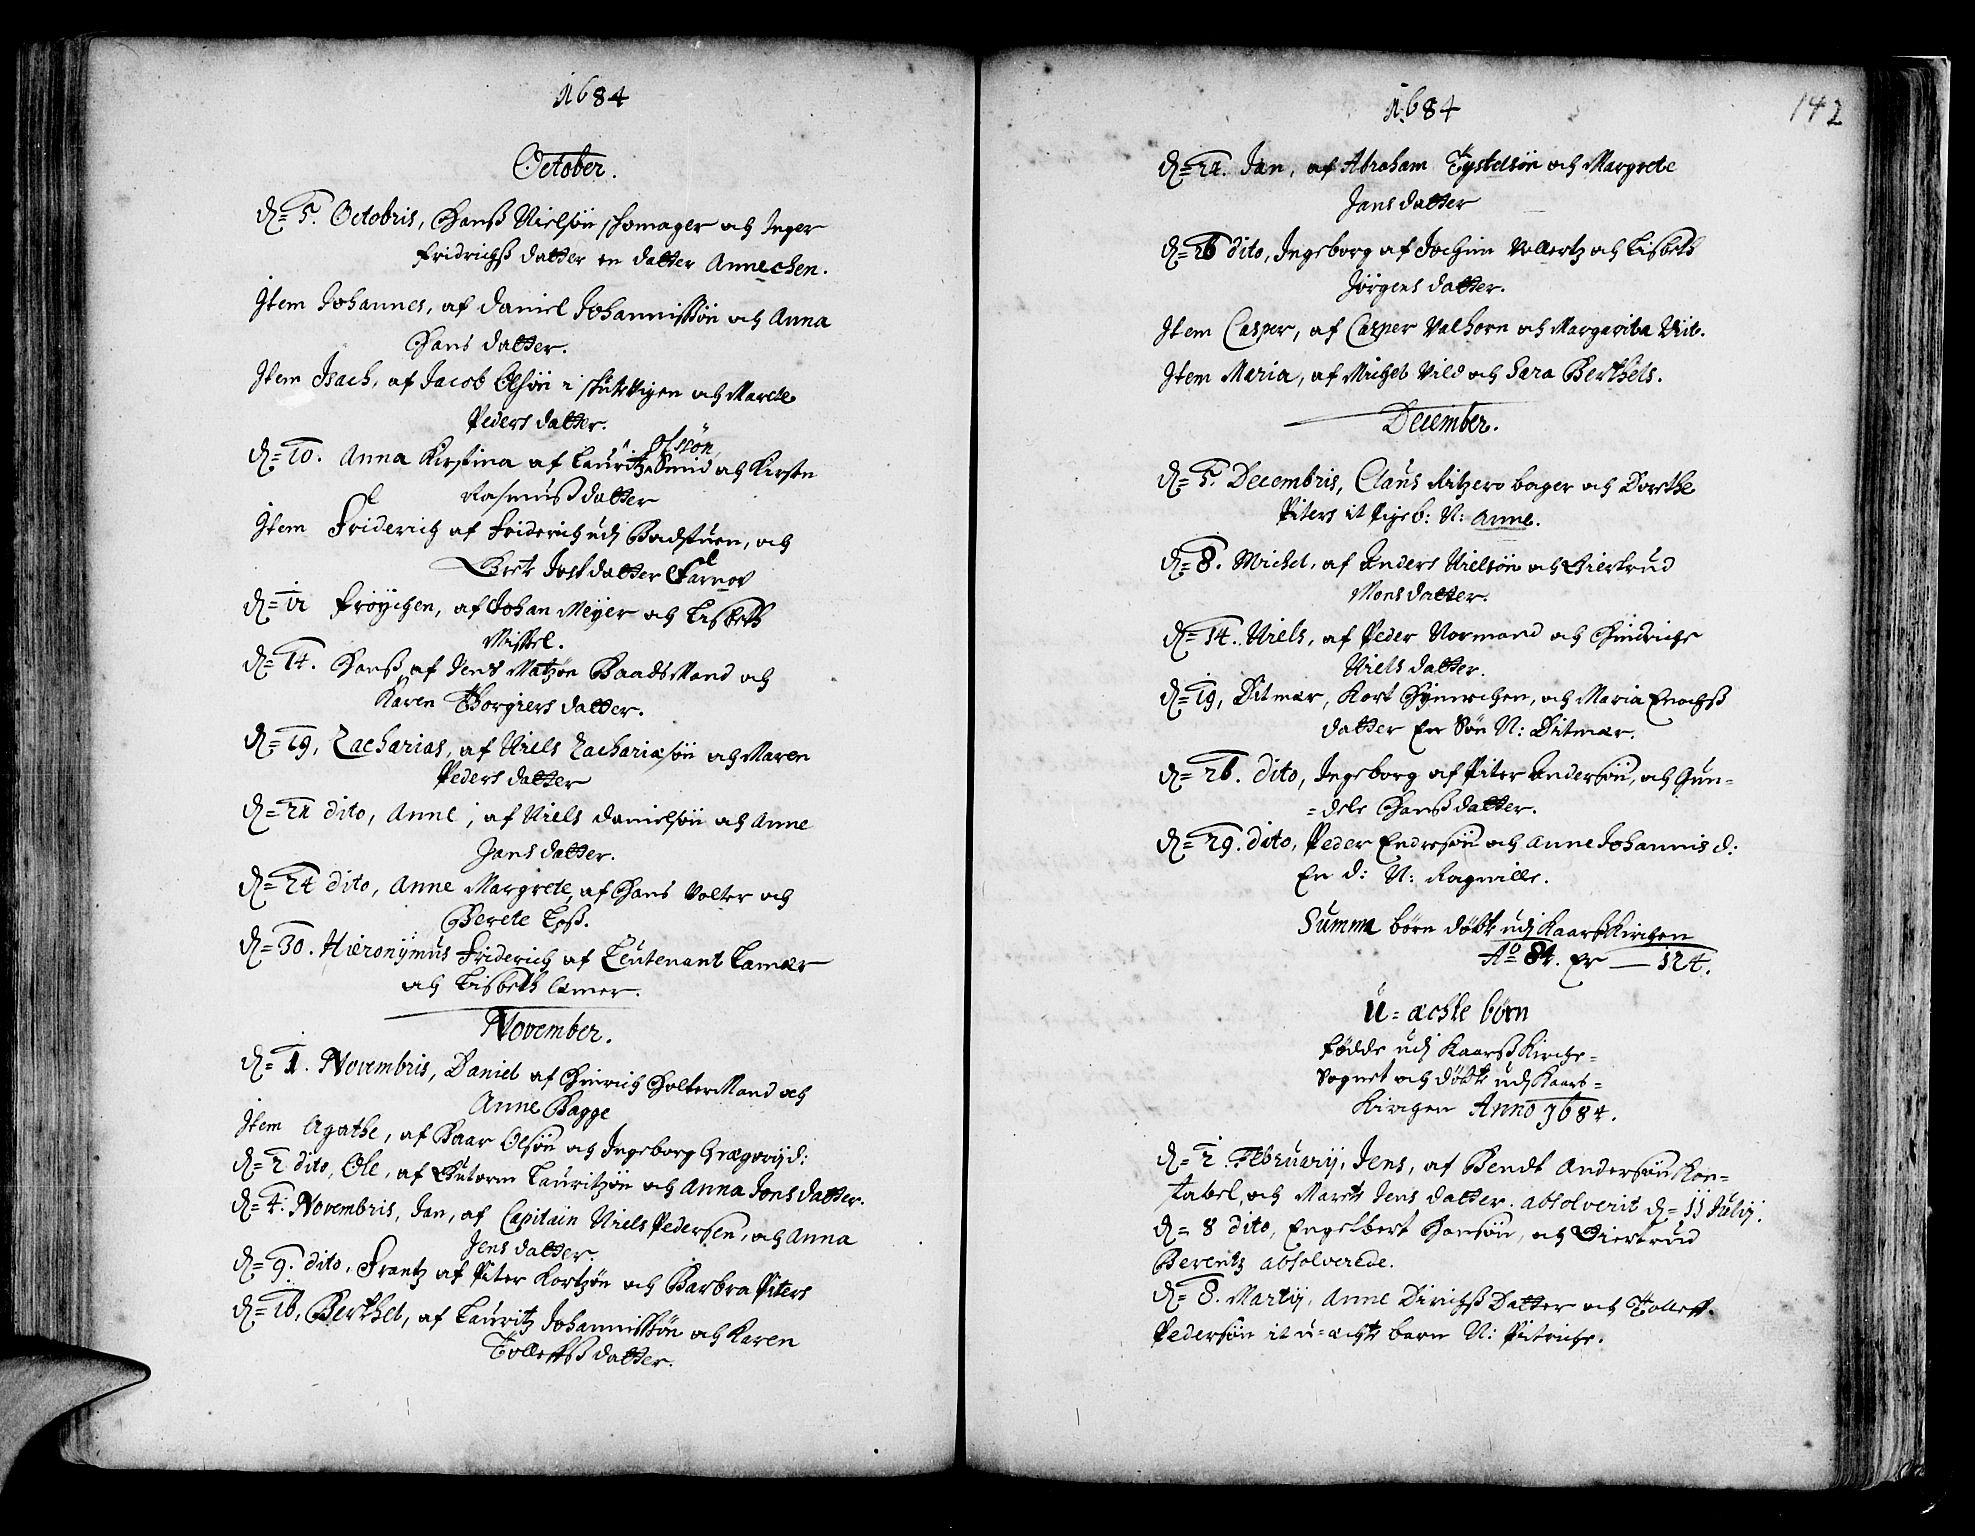 1684
October.
D= 5. Octobris, Hanß Nielsøn skomager och Inger
fridrichß datter en datter Annechen.
Item Johannes, af Daniel Johannissøn och Anna
Hans datter.
Item Isach, af Jacob Olsøn i och Marete
Peders datter.
D= 10. Anna Kirstina af Lauritz olssøn Smid och Kirsten
Rasmuß datter
Item Friderich af friderich udj Badstuen, och
Gret Jost datter
D= 12 frøychen, af Johan Meyer och Lisbeth
D= 14. Hanß af Jens Matzøn Baadsmand och
Karen Thorgiers datter.
D= 19, Zacharias, af Niels Zachariæsøn och Maren
Peders datter
D= 21 dito, Anne, af Niels Danielsøn och Anne
Jans datter.
D= 24 dito, Anne Margrete, af Hans Volter och
Berete
D= 30. Hieronymus friderich af Leutenant Lamær
och Lisbeth Lamer.
November.
D= 1. Novembris, Daniel af Hinrich Holtermand och
Anne Bagge
Item Agathe, af Baar Olsøn och Ingeborg d:
D= 2 dito, Ole, af Gutorm Lauritzøn och Anna Jons datter.
D= 4. Novembris, Jan, af Capitain Niels Pedersen, och Anna
Jens datter.
D= 9. dito, Frantz af Piter Kortzøn och Barbra Piters
D= 16. Berthel, af Lauritz Johannissøn och Karen
Tolleffß datter.
1684
142
D= 21. Jan, af Abraham Tystelsøn och Margrete
Jans datter
D= 26 dito, Ingeborg af Jochim Vollertz och Lisbeth
Jørgens datter.
Item Casper, af Casper Valhorn och Margarita
Item Maria, af Michel Vild och Sara Berthels.
December.
D= 5. Decembris, Claus Ritzero bager och Dorethe
Piters it Pigeb: N: Anne.
D= 8. Michel, af Anders Nielsøn och Giertrud
Mons datter.
D= 14. Niels, af Peder Normand och Hindriche
Niels datter.
D= 19, Ditmær, Kort och Maria Enochß
datter En Søn N: Ditmær.
D= 26. dito, Ingeborg af Piter Andersøn, och Gun-
=dele Hanß datter.
D= 29. dito, Peder Endresøn och Anne Johannis d:
En d: N: Ragnille.
Summa børn døbt udj Kaarskirchen
Ao 84. Er — 124.
U=æchte børn
fødde udj Kaarßkirche=
Sognet och døbt udj Kaars=
kirchen Anno 1684.
D= 2. February, Jens, af Bendt Andersøn Kon=
stabel, och Maret Jens datter. absolverit d= 11 July.
D= 8 dito, Engelbert Hansøn, och Giertrud
Berentz absolverede.
D= 8. Martij, Anne Dirichß Datter och Tolleff
Pedersøn it u=æcht barn N: Pitriche.